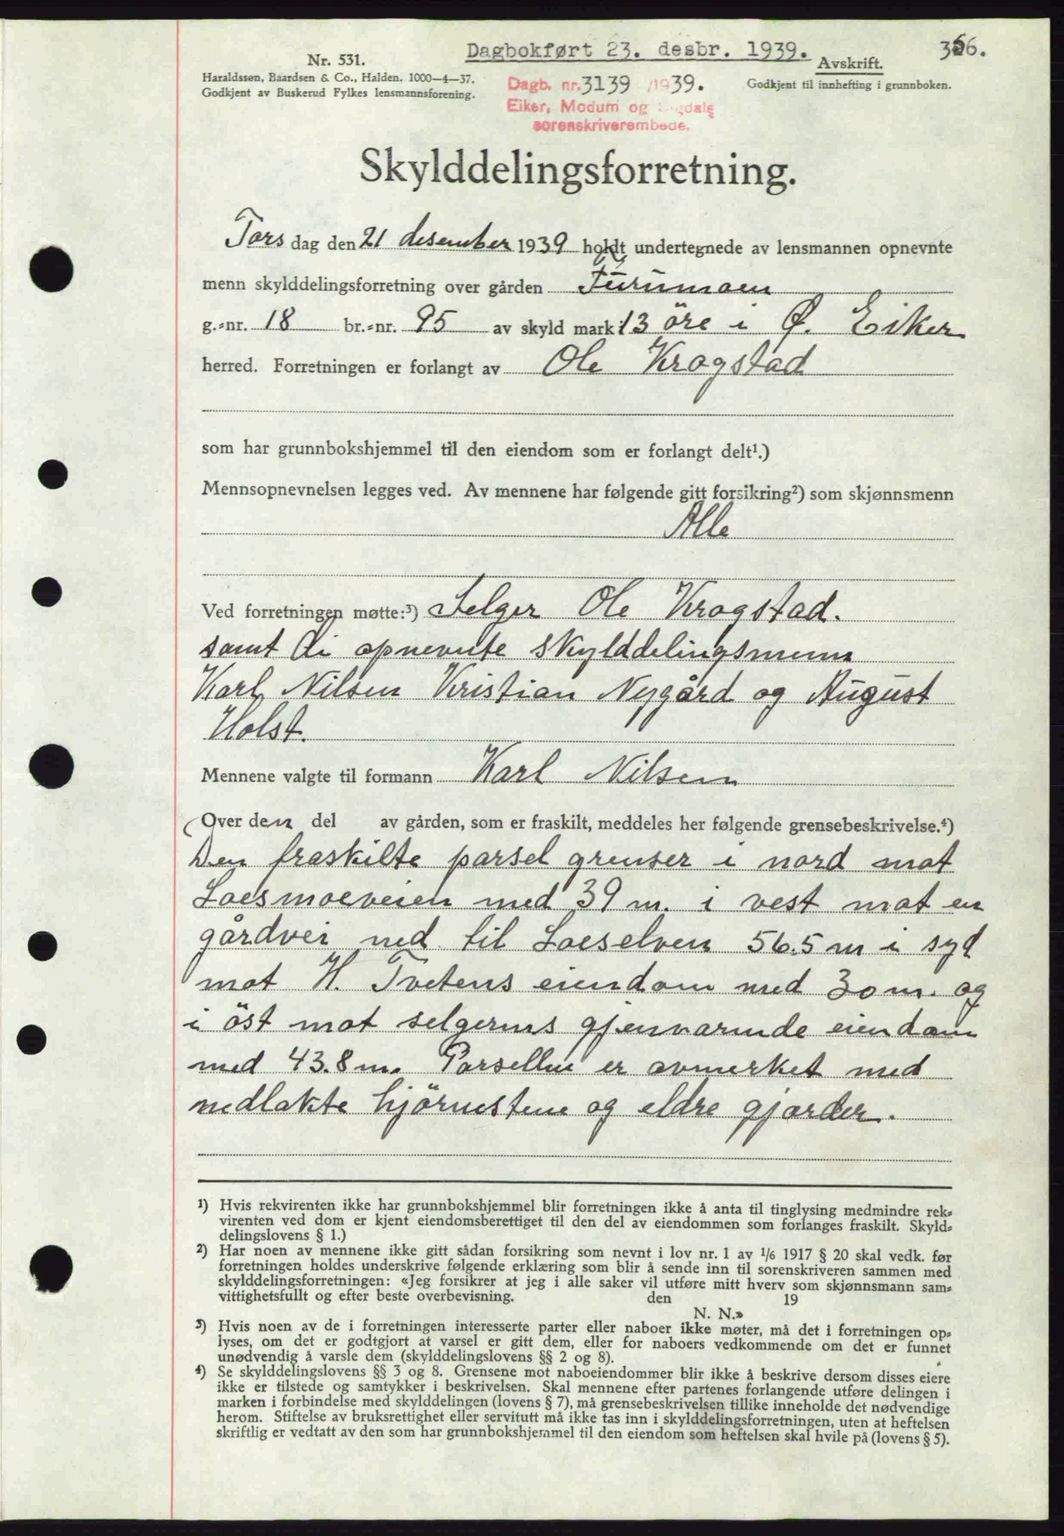 Dagbokført 23. desbr. 1939.
366.
Nr. 531.
Avskrift.
Haraldssen, Baardsen & Co., Halden. 1000—4—37.
Godkjent av Buskerud Fylkes lensmannsforening.
Dagb. nr. 3139 /1939.
Godkjent til innhefting i grunnboken.
Eiker, Modum og Sigdals
sorenskriverembede.
Skylddelingsforretning.
Tors dag den 21 desember 1939 holdt undertegnede av lensmannen opnevnte
menn skylddelingsforretning over gården Furumoen
g.-nr. 18 br.-nr. 95 av skyld mark 13 öre i Ø. Eiker
herred. Forretningen er forlangt av Ole Krogstad
som har grunnbokshjemmel til den eiendom som er forlangt delt¹.)
Mennsopnevnelsen legges ved. Av mennene har følgende gitt forsikring²) som skjønnsmenn
Alle
Ved forretningen møtte:³) Selger Ole Krogstad.
samt de opnevnte skylddelingsmenn
Karl Nilsen Kristian Nygård og August
Holst.
Mennene valgte til formann Karl Nilsen
Over den del av gården, som er fraskilt, meddeles her følgende grensebeskrivelse.⁴)
Den fraskilte parsel grenser i nord mot
Loesmoeveien med 39 m. i vest mot en
gårdvei ned til Loeselven 56.5 m i syd
mot H. Tvetens eiendom med 30 m. og
i öst mot selgerens gjenværende eiendom
med 43.8 m. Parsellen er avmerket med
nedlakte hjörnestene og eldre gjærder.
¹) Hvis rekvirenten ikke har grunnbokshjemmel blir forretningen ikke å anta til tinglysing medmindre rek-
virenten ved dom er kjent eiendomsberettiget til den del av eiendommen som forlanges fraskilt. Skyld-
delingslovens § 1.)
²) Har noen av mennene ikke gitt sådan forsikring som nevnt i lov nr. 1 av 1/6 1917 § 20 skal vedk. før
forretningen holdes underskrive følgende erklæring som blir å sende inn til sorenskriveren sammen med
skylddelingsforretningen: «Jeg forsikrer at jeg i alle saker vil utføre mitt hverv som skjønnsmann sam-
vittighetsfullt og efter beste overbevisning. den 19
N. N.»
³) Hvis noen av de i forretningen interesserte parter eller naboer ikke møter, må det i forretningen op-
lyses, om det er godtgjort at varsel er gitt dem, eller for naboers vedkommende om det er funnet
unødvendig å varsle dem (skylddelingslovens §§ 2 og 8).
⁴) Se skylddelingslovens §§ 3 og 8. Grensene mot naboeiendommer blir ikke å beskrive dersom disses eiere
ikke er tilstede og samtykker i beskrivelsen. Skal mennene efter partenes forlangende utføre delingen i
marken i forbindelse med skylddelingen (lovens § 7), må grensebeskrivelsen tillike inneholde det nødvendige
herom. Stiftelse av bruksrettighet eller servitutt må ikke tas inn i skylddelingsforretningen, uten at heftelsen
skriftlig er vedtatt av den som har grunnbokshjemmel til den eiendom som heftelsen skal hvile på (lovens § 5).